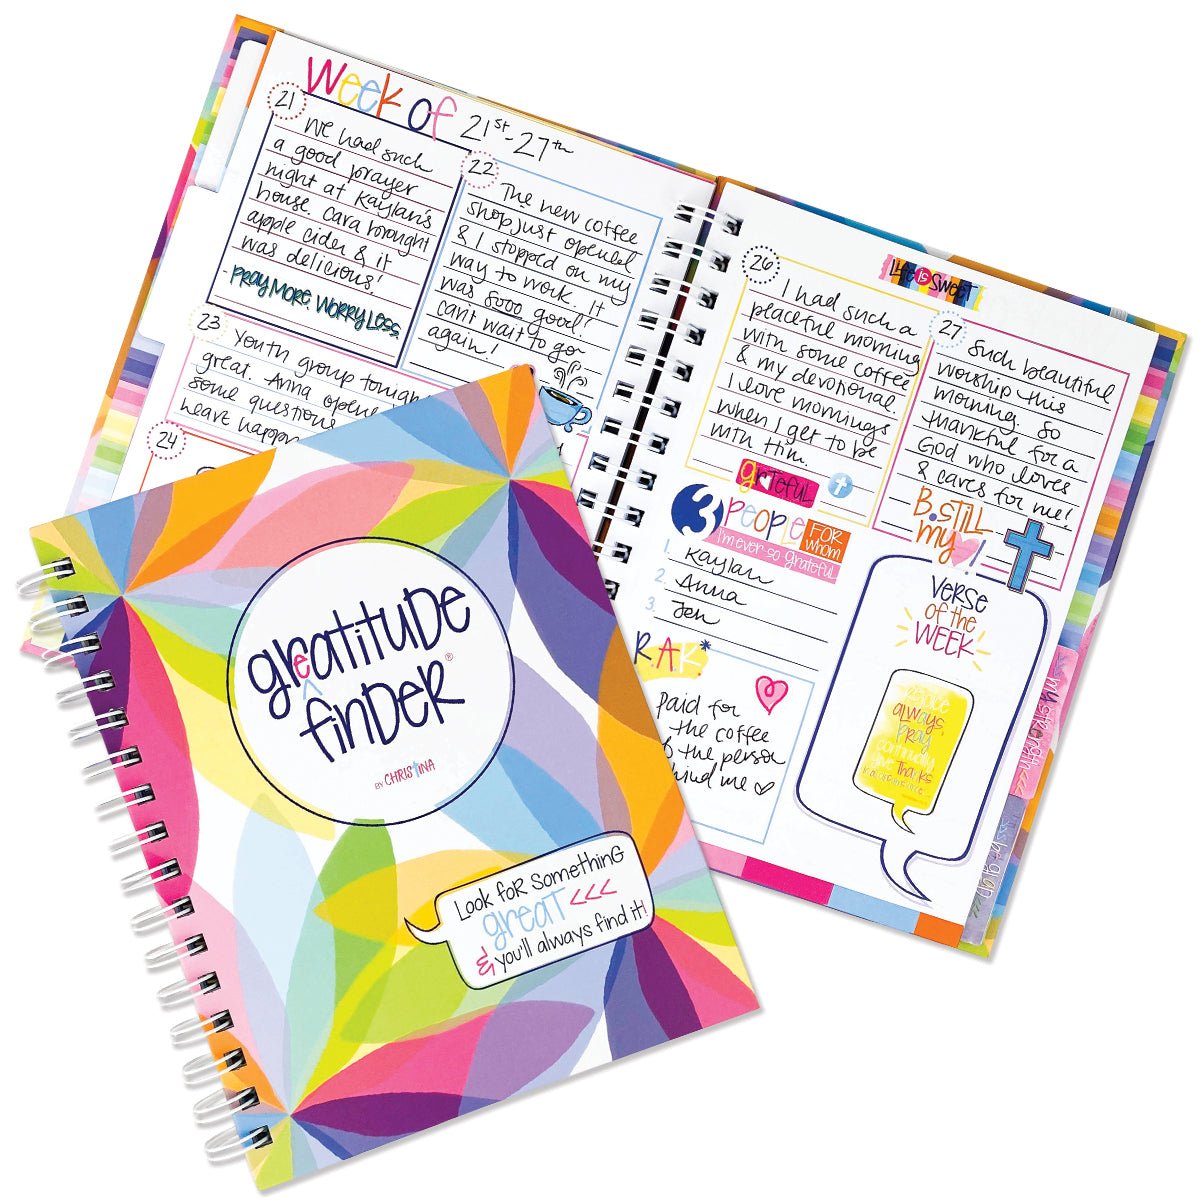 Week of 21st-27th
21
We had such
a good prayer
night at Kaylan's
house. Cara brought
apple cider & it
was delicious!
-PRAY MORE. WORRY LESS
22
The new coffee
shop just opened
& I stopped on my
way to work. It
was sooo good!
can't wait to go
again!
23
Youth group tonight
great. Anna opene
some question
heart happ
24
26
I had such a
peaceful morning
with some coffee
& my devotional.
I love mornings
when I get to be
with Him.
grateful
Life is Sweet
27
Such beautiful
worship this
morning. So
thankful for a
God who loves
& cares for me!
B.STiLL
my !
3 PEOPLE FOR whom
I'm ever-so grateful
1. Kaylan
2. Anna
3. Jen
R.A.K*
Paid for
the coffee
f the person
hind me
VERSE
OF the
WEEK
ALWAYS
PRAY
continually
give THANKS
my strength
greatitude
finder®
BY CHRISTINA
Look for something
great <<<
& you'll always find it!